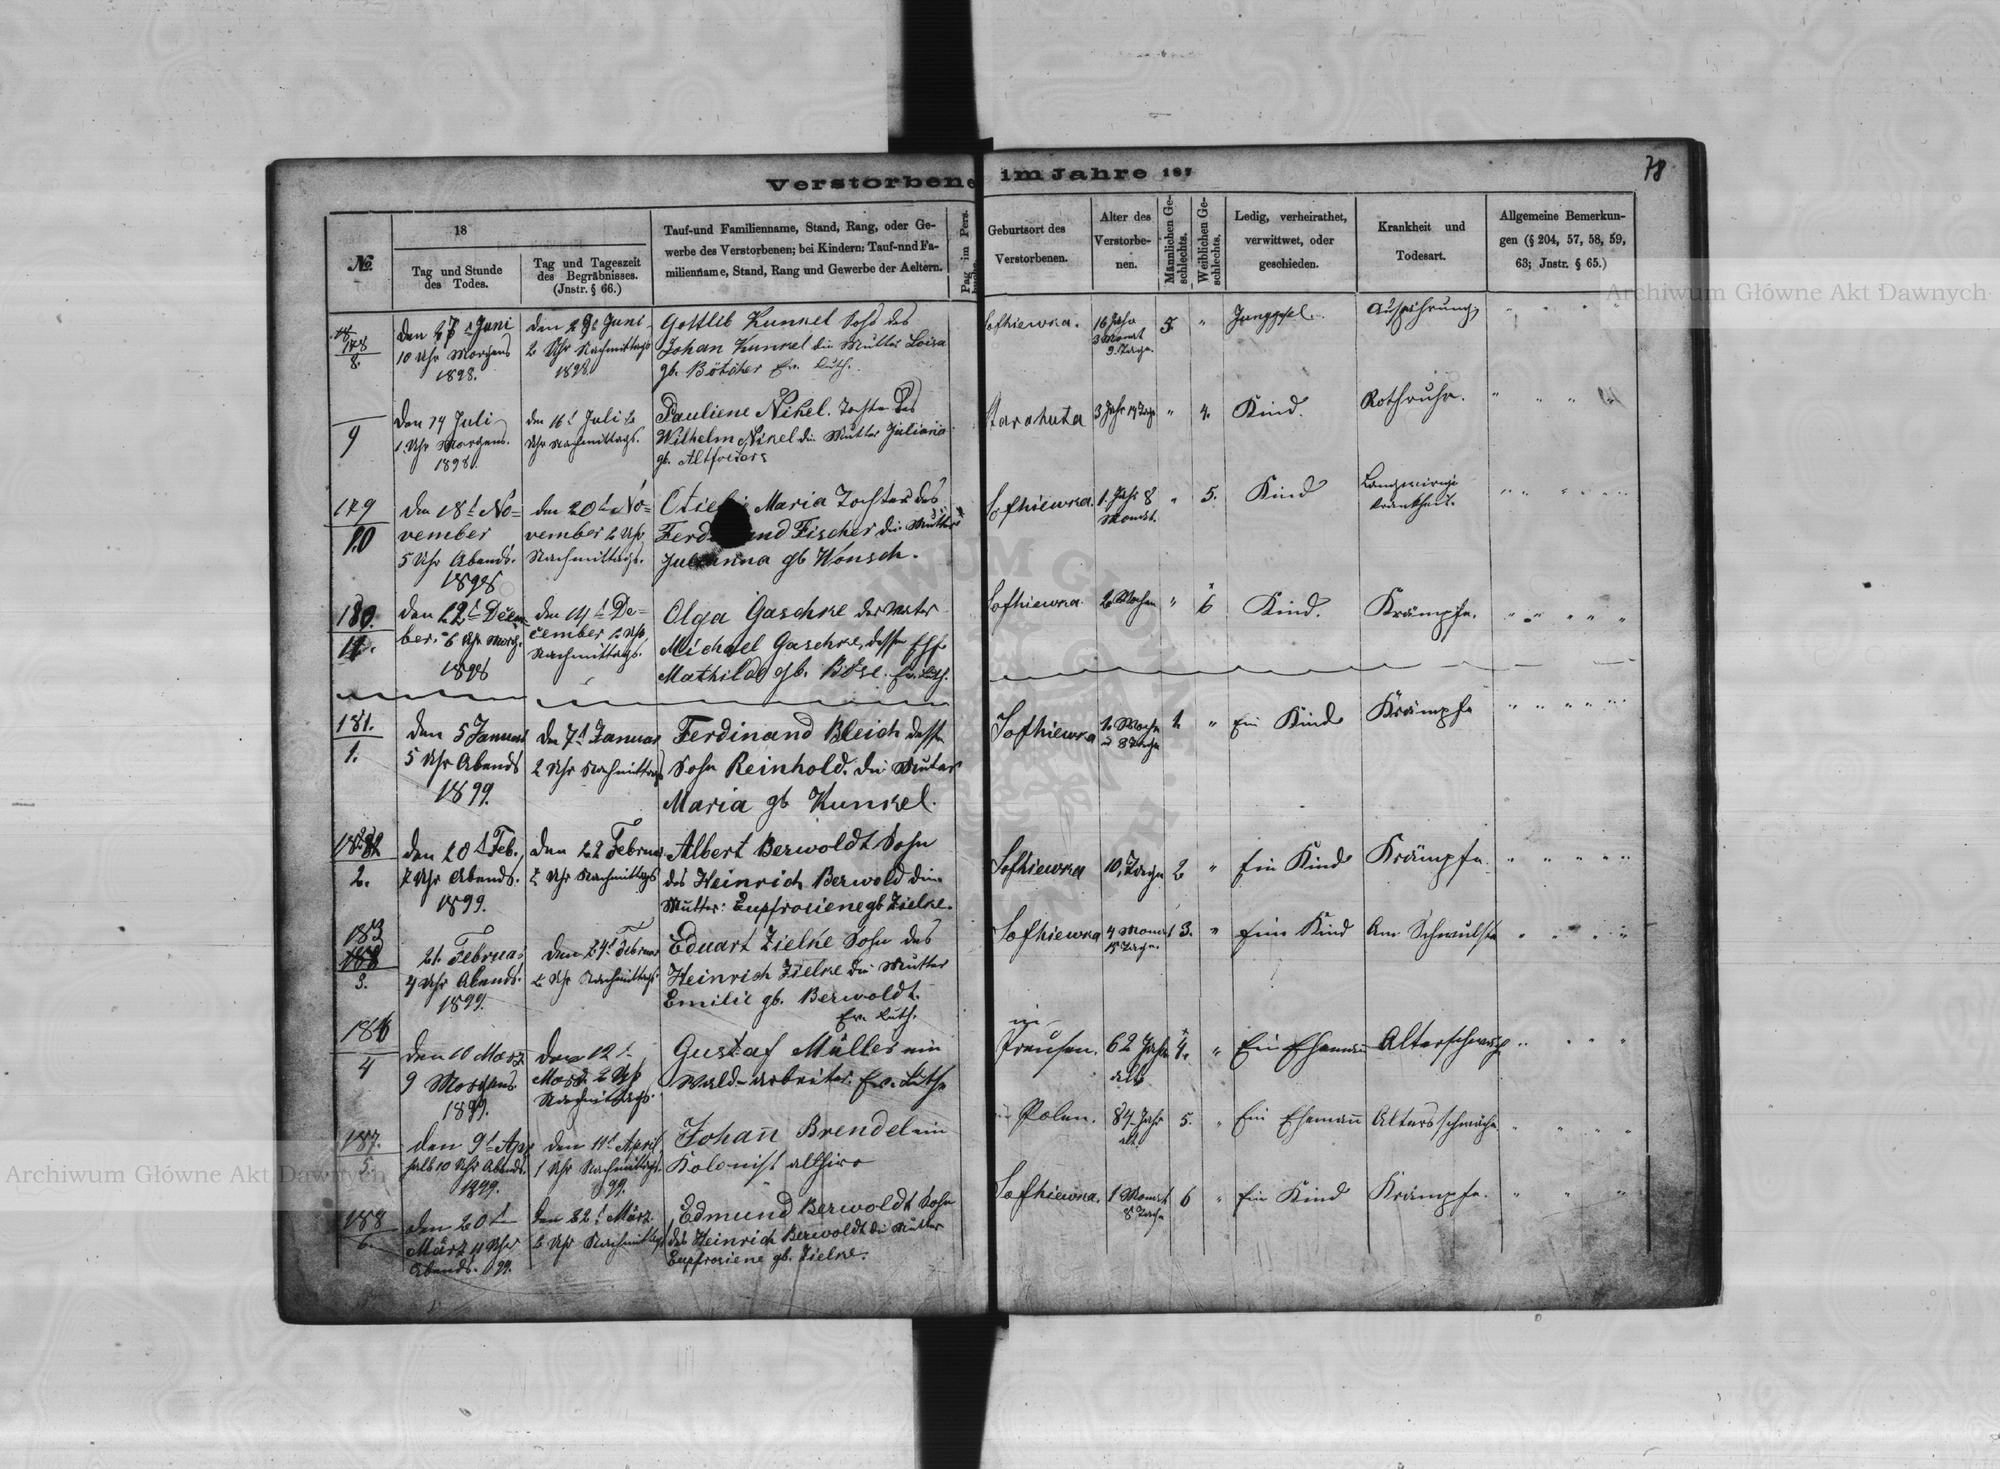 78
Verstorbene im Jahre 187
No.
18
Tag und Stunde
des Todes.
Tag und Tageszeit
des Begräbnisses.
(Jnstr. § 66.)
Tauf-und Familienname, Stand, Rang, oder Ge-
werbe des Verstorbenen; bei Kindern: Tauf-nnd Fa-
milienname, Stand, Rang und Gewerbe der Aeltern.
Pag im Pers.
Geburtsort des
Verstorbenen.
Alter des
Verstorbe-
nen.
Männlichen Ge-
schlechts.
Weiblichen Ge-
schlechts.
Ledig, verheirathet,
verwittwet, oder
geschieden.
Krankheit und
Todesart.
Allgemeine Bemerkun-
gen (§ 204, 57, 58, 59,
63; Jnstr. § 65.)
178
8.
den 27t Juni
10 Uhr Morgens
1898.
den 29t Juni
2 Uhr Nachmittags
1898.
Gottlib Kunkel Sohn des
Johan Kunkel die Mutter Loisa
gb. Bötcher Ev. Luth.
Sofhiewka.
16 Jahr
3 Monat
9. Tage.
5.
Junggesel.
Auszehrung
9
den 14 Juli
1 Uhr Morgens.
1898.
den 16t Juli 2
Uhr Nachmittags.
Pauliene Nikel. Tochter des
Wilhelm Nikel die Mutter Juliana
gb.
Starahuta
3 Jahr 14 Tage
"
4.
Kind.
Rothruhr.
179
10
den 18t No=
vember
5 Uhr Abends.
1898
den 20t No=
vember 2 Uhr
Nachmittags.
Maria Tochter des
Ferdinand Fischer die Mutter
Julianna gb Wonsch.
Sofhiewka.
1. Jahr 8
Monat.
"
5.
Kind
krankheit.
180.
11.
den 12t Decem
ber. 6 Uhr Morg.
1898
den 14t De=
cember 2 Uhr
Nachmittags.
Olga Gaschke der Vater
Michael Gaschke, dessen Ehf.
Mathilda gb. Böse. Ev. Luth.
Sofhiewka.
2 Wochen
"
6
Kind.
Krämpfe.
181.
1.
den 5 Januar
5 Uhr Abends
1899.
den 7t Januar
2 Uhr Nachmittags
Ferdinand Bleich dessen
Sohn Reinhold. die Mutter
Maria gb Kunkel.
Sofhiewka
2. Woche
u 8 Tage
1.
"
Ein Kind
Krämpfe
182
2.
den 20t Feb.
7 Uhr Abends.
1899.
den 22 Februar
2 Uhr Nachmittags
Albert Berwoldt Sohn
des Heinrich Berwold die
Mutter: Eupfrosiene gb Zielke.
Sofhiewka
10. Tage
2
"
Ein Kind
Krämpfe.
183
3.
21. Februar
4 Uhr Abends.
1899.
den 24t Februar
2 Uhr Nachmittags
Eduart Zielke Sohn des
Heinrich Zielke die Mutter
Emilie gb. Berwoldt.
Ev. Luth.
Sofhiewka
4 Monat
15 Tage.
3.
"
Ein Kind
An Schwulst
186
4
den 10 Marz
9 Morgens
1899.
den 12t
Marz. 2 Uhr
Nachmittags.
Gustaf Müller ein
Wald-arbeiter. Ev. Luth
in
Preusen.
62 Jahr
alt
4.
"
Ein Ehemañ
Alterschwäche
187.
5.
den 9t Apr
halb 10 Uhr Abends.
1899.
den 11t April
1 Uhr Nachmittags.
99.
Johañ Brendel ein
Kolonist althiro
in Polen.
84 Jahr
alt
5.
"
Ein Ehemañ
Altersschwäche
188
6.
den 20t
März 4 Uhr
Abends. 99.
den 22t März
2 Uhr Nachmittags
Edmund Berwoldt Sohn
des Heinrich Berwoldt die Mutter
Eupfrosiene gb. Zielke.
Sofhiewka.
1 Monat
8 Tage
6
"
Ein Kind
Krämpfe.
Archiwum Główne Akt Dawnych
Archiwum Główne Akt Dawnych